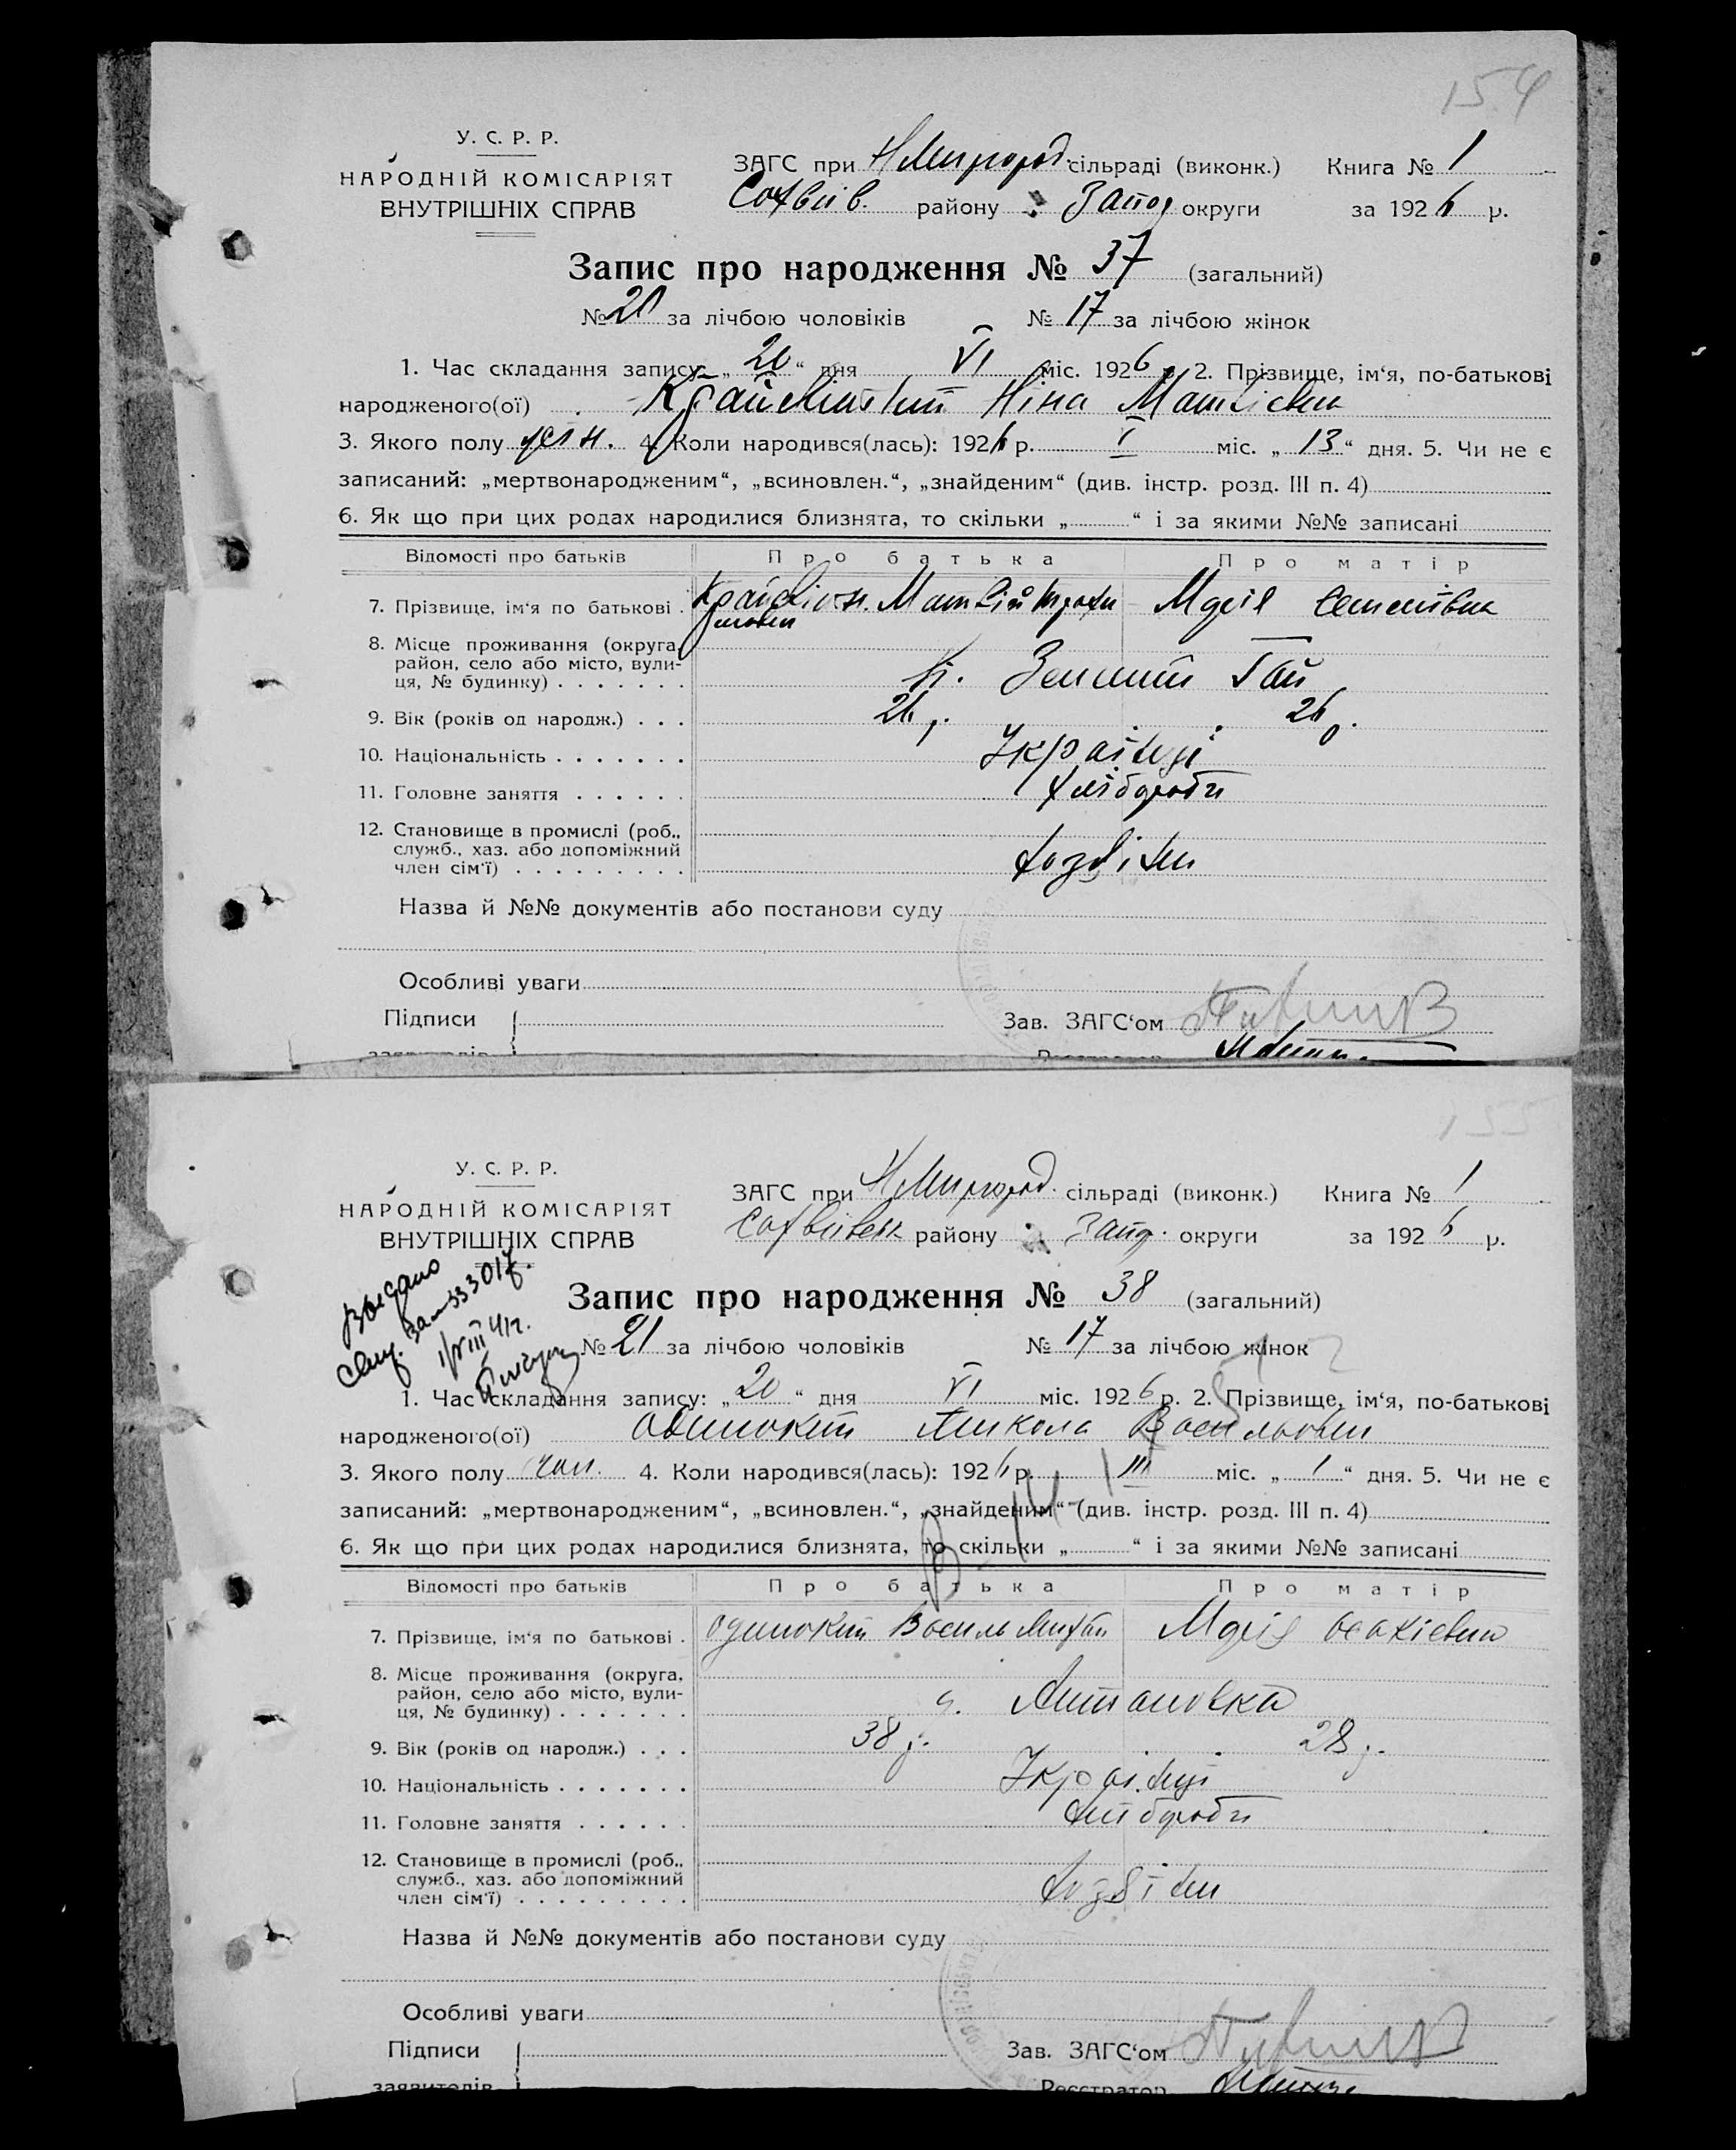 154
У. С. Р. Р.
НАРОДНІЙ КОМІСАРІЯТ
ВНУТРІШНІХ СПРАВ
ЗАГС при Н Миргород. сільраді (виконк.) Книга № 1
Софіїв. району Запор округи за 1926 р.
Запис про народження № 37 (загальний)
№ 20 за лічбою чоловіків № 17 за лічбою жінок
1. Час складання запису: „20“ дня VI міс. 1926 2. Прізвище, ім‘я, по-батькові
народженого(ої) Ніна Матвієвна
3. Якого полу жін. 4. Коли народився(лась): 1926 р. V міс. „13“ дня. 5. Чи не є
записаний: „мертвонародженим“, „всиновлен.“, „знайденим“ (див. інстр. розд. III п. 4)
6. Як що при цих родах народилися близнята, то скільки „ “ і за якими №№ записані
Відомості про батьків Про батька Про матір
7. Прізвище, ім‘я по батькові . Матвій Трохи мович Марія Семенівна
8. Місце проживання (округа, район, село або місто, вули- ця, № будинку) . . . . . . . Зелений Гай
9. Вік (років од народж.) . . . 26 р. 26 р.
10. Національність . . . . . . . Українці
11. Головне заняття . . . . . . хлібороби
12. Становище в промислі (роб., служб., хаз. або допоміжний член сім‘ї) . . . . . . . . . хазяїни
Назва й №№ документів або постанови суду
Особливі уваги
Підписи Зав. ЗАГС‘ом
заявителів Реєстратор
155
У. С. Р. Р.
НАРОДНІЙ КОМІСАРІЯТ
ВНУТРІШНІХ СПРАВ
ЗАГС при Н Миргород. сільраді (виконк.) Книга № 1
Софіївськ району Запор. округи за 1926 р.
Выдано
Запис про народження № 38 (загальний)
№ 21 за лічбою чоловіків № 17 за лічбою жінок
1. Час складання запису: „20“ дня VI міс. 1926 р. 2. Прізвище, ім‘я, по-батькові
народженого(ої) Одинокий Микола Васильович
3. Якого полу чол. 4. Коли народився(лась): 1926 р. III міс. „1“ дня. 5. Чи не є
записаний: „мертвонародженим“, „всиновлен.“, „знайденим“ (див. інстр. розд. III п. 4)
6. Як що при цих родах народилися близнята, то скільки „ “ і за якими №№ записані
Відомості про батьків Про батька Про матір
7. Прізвище, ім‘я по батькові . Одинокий Василь Михай Марія Ісакієвна
8. Місце проживання (округа, район, село або місто, вули- ця, № будинку) . . . . . . .
9. Вік (років од народж.) . . . 38 р. 28 р.
10. Національність . . . . . . . Українці
11. Головне заняття . . . . . . хлібороби
12. Становище в промислі (роб., служб., хаз. або допоміжний член сім‘ї) . . . . . . . . . хазяїни
Назва й №№ документів або постанови суду
Особливі уваги
Підписи Зав. ЗАГС‘ом
заявителів Реєстратор